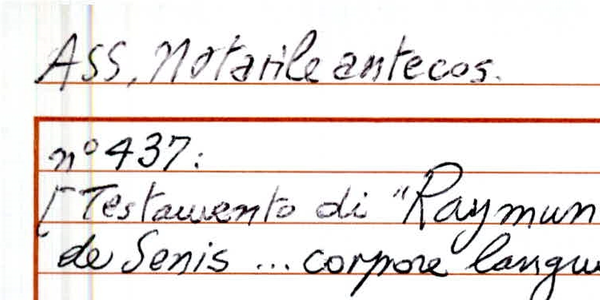 ASS, Notarile antecos.
n° 437:
[Testamento di "Raymun
de Senis ... corpore langue